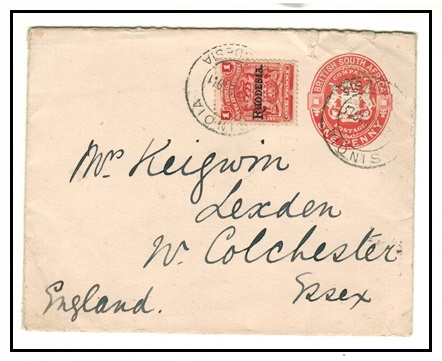 RHODESIA
BRITISH SOUTH AFRICA
COMPANY
POSTAGE
ONE PENNY
SINOIA
Mrs Keigwin
Lexden
W. Colchester
England. Essex